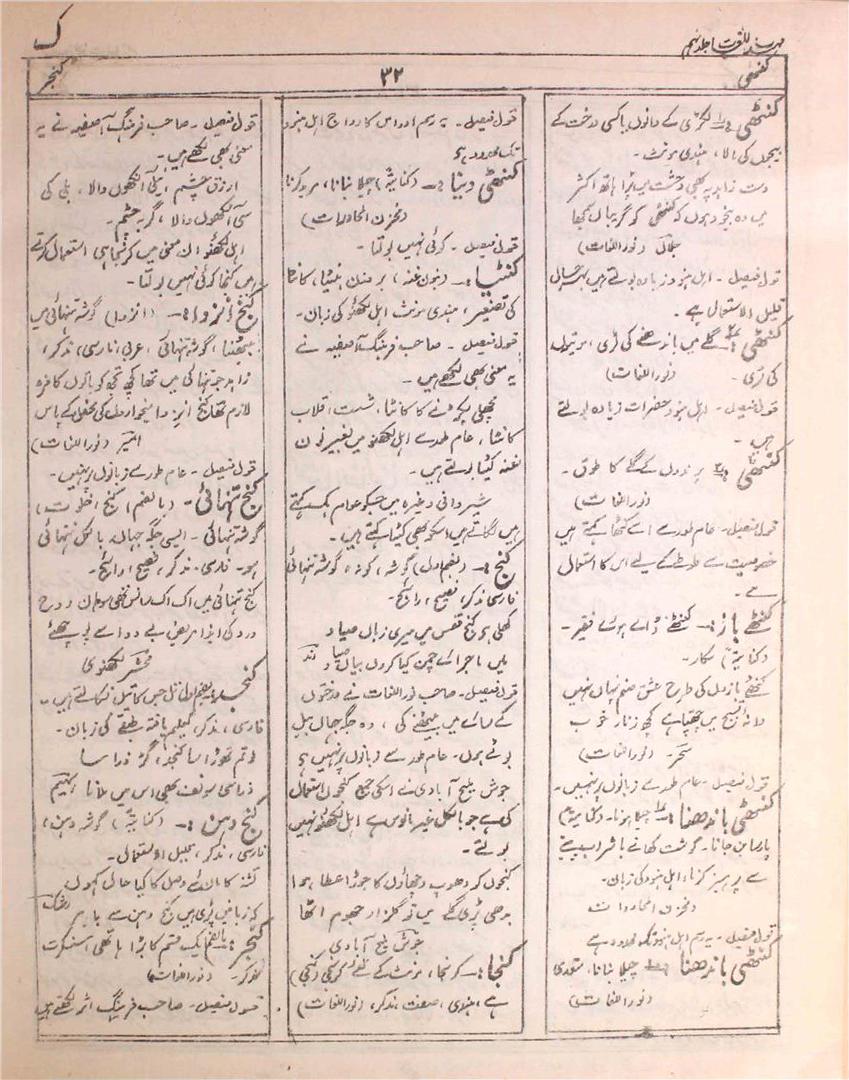 مہذب اللغات جلد نہم
ک
کنٹھی
۳۲
کنجر
کنٹھی ؎۱ لکڑی کے دانوں یا کسی درخت کے
بیجوں کی مالا، ہندی مونث۔
دست زاہد پہ بھی وحشت میں پڑا ہاتھ اکثر
میں وہ بیخود ہوں کہ کنٹھی کو گریباں سمجھا
جلال (نوراللغات)
قول فیصل۔ اہل ہنود زیادہ بولتے ہیں بہرحال
قلیل الاستعمال ہے۔
کنٹھی ؎۲ گلے میں باندھنے کی لڑی، موتیوں
کی لڑی۔ (نوراللغات)
قول فیصل۔ اہل ہنود حضرات زیادہ بولتے
ہیں۔
کنٹھی ؎۳ پرندوں کے گلے کا طوق۔
(نوراللغات)
قول فیصل۔ عام طور سے اسے کنٹھا کہتے ہیں
خصوصیت سے طوطے کے لیے اس کا استعمال
ہے۔
کنٹھے باز :۔ کنٹھے ڈالے ہوئے فقیر۔
(کنایۃً) مکار۔
کنٹھے بازوں کی طرح عشق صنم پہاں نہیں
دانہ تسبیح میں چھپاہے کچھ زنار خوب
سحر۔ (نوراللغات)
قول فیصل۔ عام طور سے زبانوں پر نہیں۔
کنٹھی باندھنا :۔ ؎۱ چیلا ہونا۔ (کنایۃً)
پارسا بن جانا۔ گوشت کھانے یا شراب پینے
سے پرہیز کرنا، اہل ہنود کی زبان۔
(مخزن المحاورات)
قول فیصل۔ یہ رسم اہل ہنود تک محدود ہے
کنٹھی باندھنا ؎۲ چیلا بنانا، متعدی
(نوراللغات)
قول فیصل۔ یہ رسم اور اس کا رواج اہل ہنود
تک محدود ہے
کنٹھی دینا :۔ (کنایۃً) چیلا بنانا، مرید کرنا
(مخزن المحاورات)
قول فیصل۔ کوئی نہیں بولتا۔
کنٹیا :۔ (بنون غنہ، بر وزن بٹیا، کانٹا
کی تصغیر، ہندی مونث اہل لکھنؤ کی زبان۔
قول فیصل۔ صاحب فرہنگ آصفیہ نے
یہ معنی بھی لکھے ہیں۔
مچھلی پکڑنے کا کانٹا، شست قلاب
کانٹا، عام طور سے اہل لکھنؤ میں بغیر نون
غنہ کٹیا بولتے ہیں۔
شیروانی وغیرہ میں جسکو عوام ہک کہتے
ہیں لگاتے ہیں اسکو بھی کٹیا کہتے ہیں۔
کنج :۔ (بضم اول) گوشہ، کونہ، گوشۂ تنہائی
فارسی مذکر، فصیح، رائج۔
کھلی ہو کنج قفس میں میری زباں صیاد
میں ماجرائے چمن کیا کروں بیاں صیاد رند
قول فیصل۔ صاحب نوراللغات نے درختوں
کے سائے میں بیٹھنے کی، وہ جگہ جہاں بیل
بوٹے ہوں۔ عام طور سے زبانوں پر نہیں ہے
جوش ملیح آبادی نے اسکی جمع کنجوں استعمال
کی ہے جو بالکل غیر مانوس ہے اہل لکھنؤ نہیں
بولتے۔
کنجوں کو دھوپ چھاؤں کا جوڑا عطا ہوا
بوندیں پڑی گلے میں تو گلزار جھوم اٹھا
جوش ملیح آبادی
کنجا :۔ کرنجا، مونث کے لئے کرنجی (کنجی)
ہے، ہندی، صفت، مذکر، (نوراللغات)
قول فیصل۔ صاحب فرہنگ آصفیہ نے یہ
معنی بھی لکھے ہیں۔
ازرق چشم، نیلی آنکھوں والا، بلی کی
سی آنکھوں والا، گربہ چشم۔
اہل لکھنؤ ان معنی میں کرنجا ہی استعمال کرتے
ہیں کنجا کوئی نہیں بولتا۔
کنج انزوا :۔ (انزوا) گوشۂ تنہائی میں
بیٹھنا، گوشۂ تنہائی، عربی فارسی، مذکر،
زاہد جو تنہائی میں تھا کچھ تجھ کو باتوں کا مزہ
لازم تھا کنج انزوا میخواروں کی محفل کے پاس
امیر (نوراللغات)
قول فیصل۔ عام طور سے زبانوں پر نہیں۔
کنج تنہائی۔ (بالضم) کنج (خلوت)
گوشۂ تنہائی۔ ایسی جگہ جہاں بالکل تنہائی
ہو۔ فارسی۔ مذکر، فصیح، رائج۔
کنج تنہائی میں اک اک سانس تھی سوہان روح
درد کی ایذا مریض بے دوا سے پوچھئے
محشر لکھنوی
کنجد :۔ بضم اول تل جس کا تیل نکالتے ہیں۔
فارسی، مذکر، تعلیم یافتہ طبقے کی زبان۔
لو تم تھوڑا سا کنجد، گڑ ذرا سا
ذرا سی سونف بھی اس میں ملانا
کنج دہن :۔ (کنایۃً) گوشۂ دہن،
فارسی، مذکر، قلیل الاستعمال۔
تشنہ کامان مے وصل کا کیا حال کہوں
کہ زبانیں پڑی ہیں کنج دہن سے باہر رشک
کنجر :۔ بالضم ایک قسم کا بڑا ہاتھی، سنسکرت
مذکر۔ (نوراللغات)
قول فیصل۔ صاحب فرہنگ اثر لکھتے ہیں